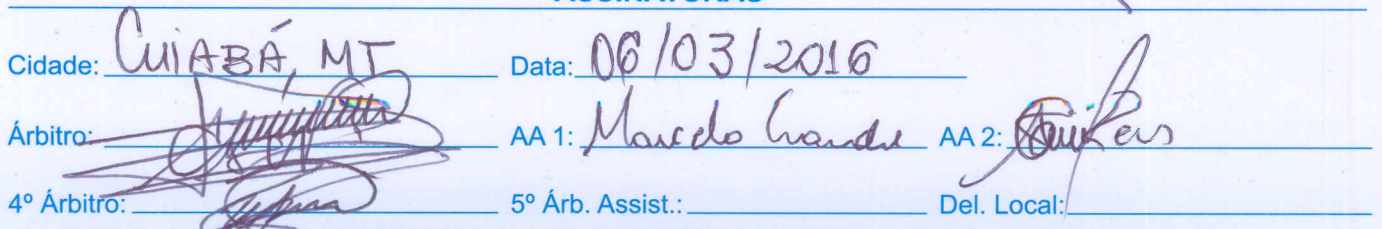 ASSINATURAS
Cidade: CUIABÁ, MT Data: 06/03/2016
Árbitro: AA 1: Marcelo Grande AA 2:
4º Árbitro: 5º Árb. Assist.: Del. Local: